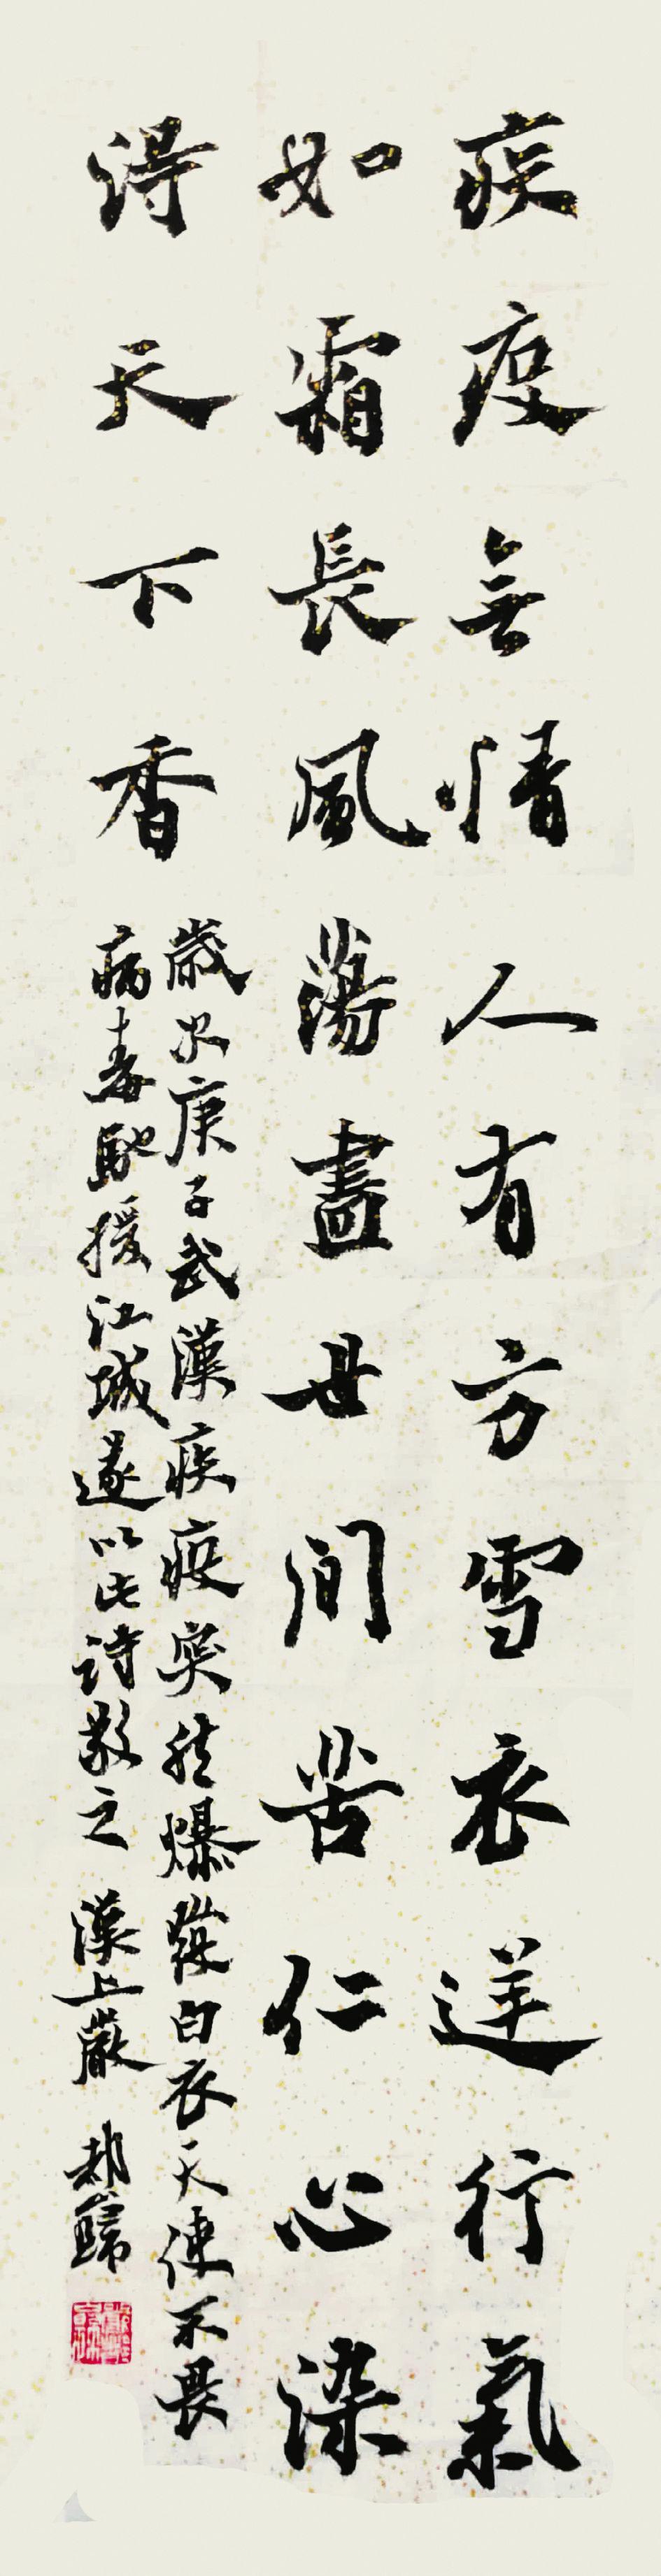 疾疫無情人有方雪衣逆行氣
如霜長風蕩盡世間苦仁心染
得天下香
歲次庚子武漢疾疫突然爆發白衣天使不畏
病毒馳援江城遂以此詩敬之 漢上嚴